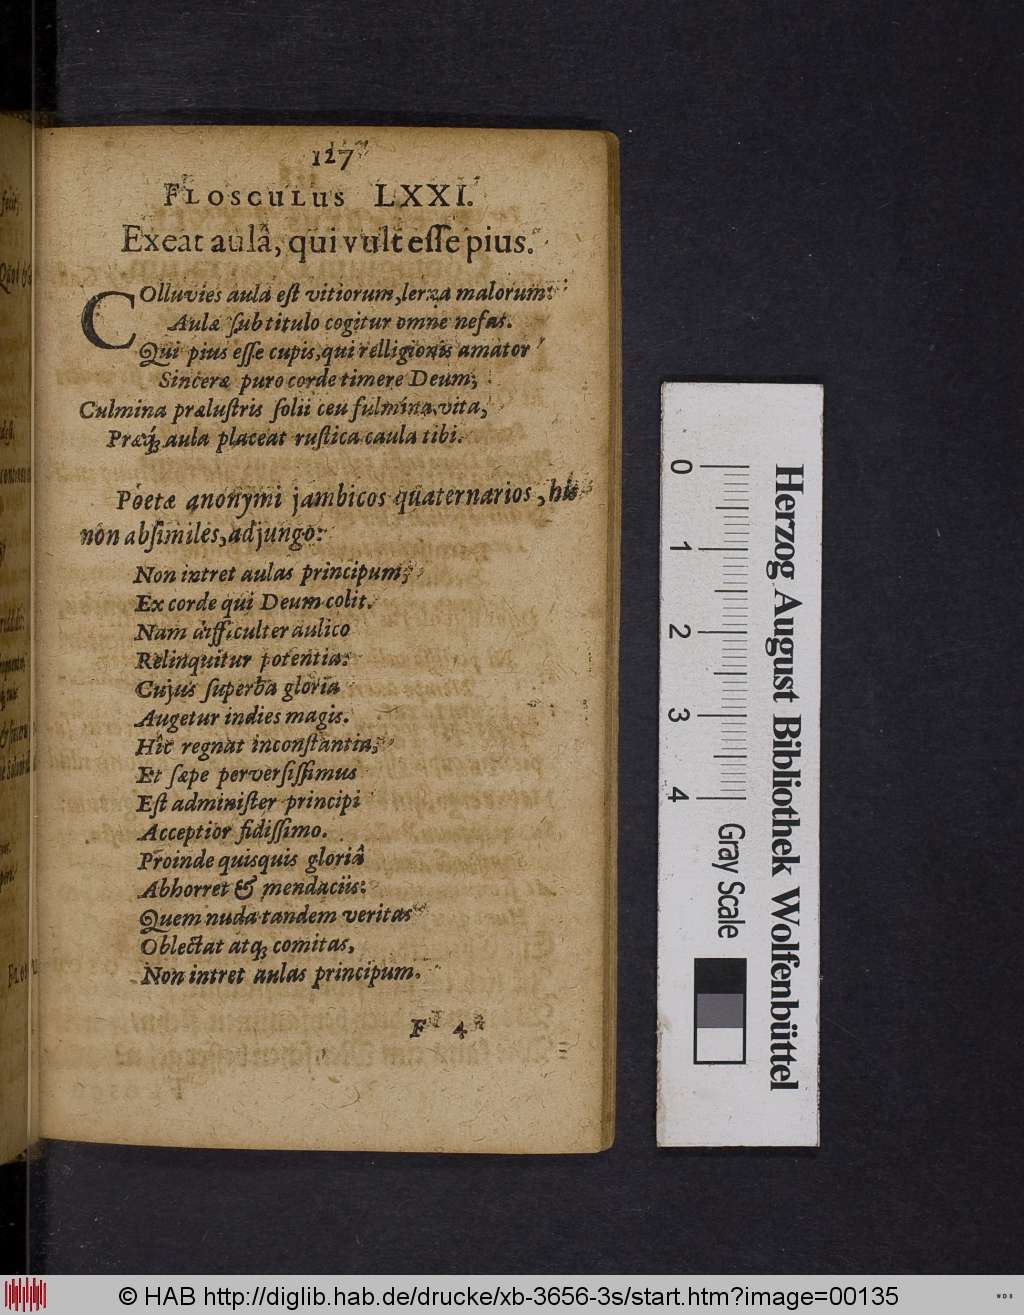 127
FLOSCULUS LXXI.
Exeat aulâ, qui vult eſſe pius.
COlluvies aula eſt vitiorum, lerna malorum:
Aulæ ſub titulo cogitur omne nefas.
Qui pius eſſe cupis, qui relligionis amator
Sinceræ puro corde timere Deum;
Culmina præluſtris ſolii ceu fulmina, vita,
Præq́ꝫ aula placeat ruſtica caula tibi.
Poëtæ anonymi jambicos quaternarios, his
non abſimiles, adjungo:
Non intret aulas principum,
Ex corde qui Deum colit.
Nam difficulter aulico
Relinquitur potentia:
Cujus ſuperba gloria
Augetur indies magis.
Hîc regnat inconſtantia,
Et ſæpe perverſiſſimus
Eſt adminiſter principi
Acceptior fidiſſimo.
Proinde quisquis gloriâ
Abhorret & mendaciis:
Quem nuda tandem veritas
Oblectat atqꝫ comitas,
Non intret aulas principum.
F 4
Herzog August Bibliothek Wolfenbüttel
0 1 2 3 4 Gray Scale
© HAB http://diglib.hab.de/drucke/xb-3656-3s/start.htm?image=00135